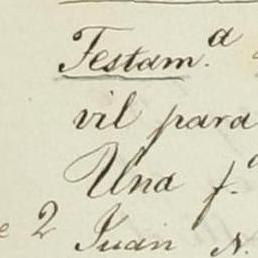 Testam.ᵃ
vil para
Una f.
e 2 Juan N.